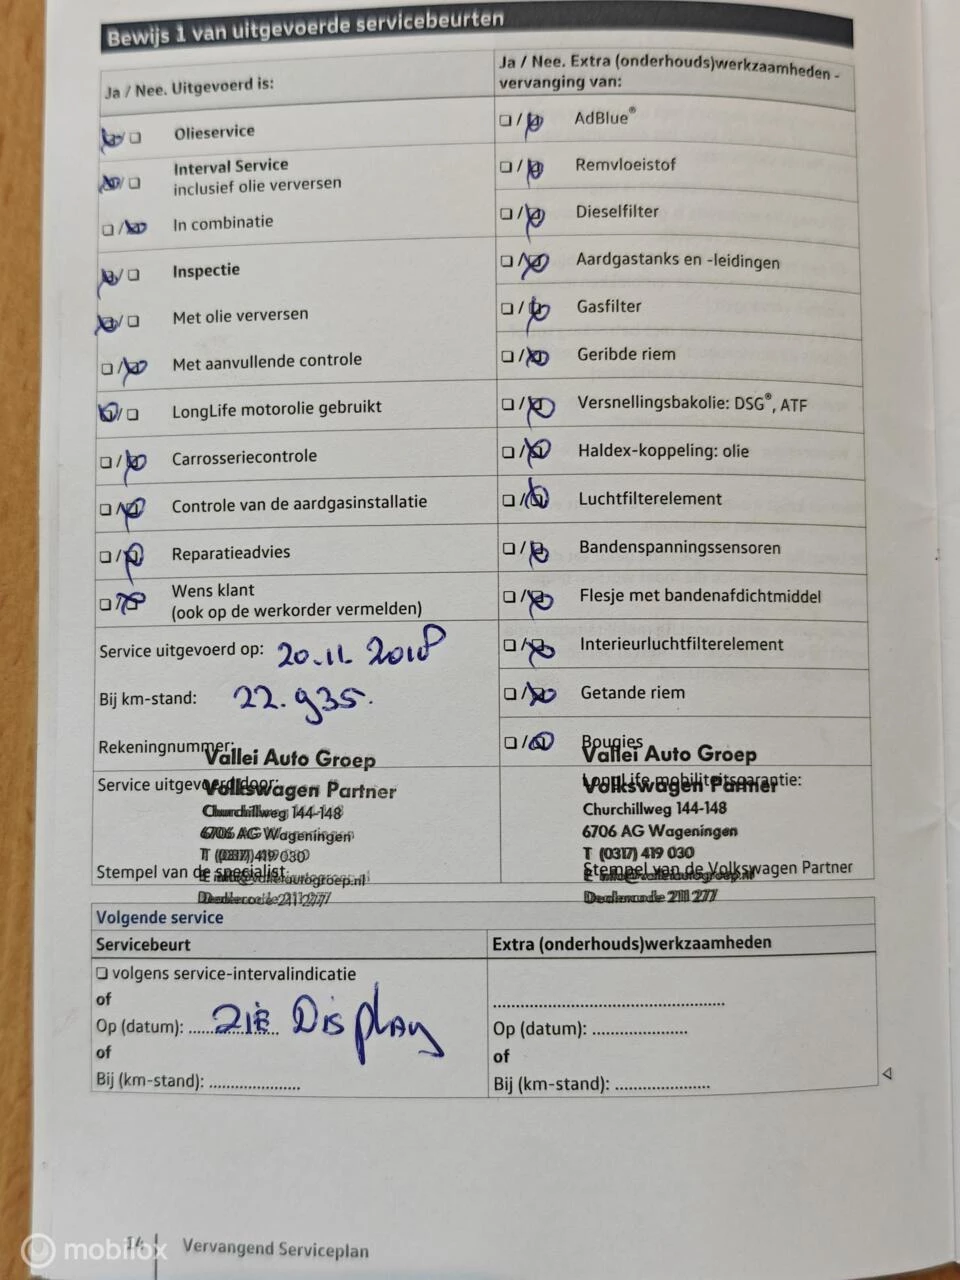 Bewijs 1 van uitgevoerde servicebeurten
Ja / Nee. Uitgevoerd is:
Olieservice
Interval Service
inclusief olie verversen
In combinatie
Inspectie
Met olie verversen
Met aanvullende controle
LongLife motorolie gebruikt
Carrosseriecontrole
Controle van de aardgasinstallatie
Reparatieadvies
Wens klant
(ook op de werkorder vermelden)
Service uitgevoerd op: 20.11.2018
Bij km-stand: 22.935.
Rekeningnummer:
Vallei Auto Groep
Service uitgevoerd door:
Volkswagen Partner
Churchillweg 144-148
6706 AG Wageningen
T (0317) 419 030
Stempel van de specialist
E info@valleiautogroep.nl
Dealercode 211 277
Ja / Nee. Extra (onderhouds)werkzaamheden -
vervanging van:
AdBlue®
Remvloeistof
Dieselfilter
Aardgastanks en -leidingen
Gasfilter
Geribde riem
Versnellingsbakolie: DSG®, ATF
Haldex-koppeling: olie
Luchtfilterelement
Bandenspanningssensoren
Flesje met bandenafdichtmiddel
Interieurluchtfilterelement
Getande riem
Bougies
Vallei Auto Groep
LongLife mobiliteitsgarantie:
Volkswagen Partner
Churchillweg 144-148
6706 AG Wageningen
T (0317) 419 030
Stempel van de Volkswagen Partner
E info@valleiautogroep.nl
Dealercode 211 277
Volgende service
Servicebeurt
volgens service-intervalindicatie
of
Op (datum): ZIE DISplAy
of
Bij (km-stand): ....................
Extra (onderhouds)werkzaamheden
Op (datum): ....................
of
Bij (km-stand): ....................
14
Vervangend Serviceplan
mobilox